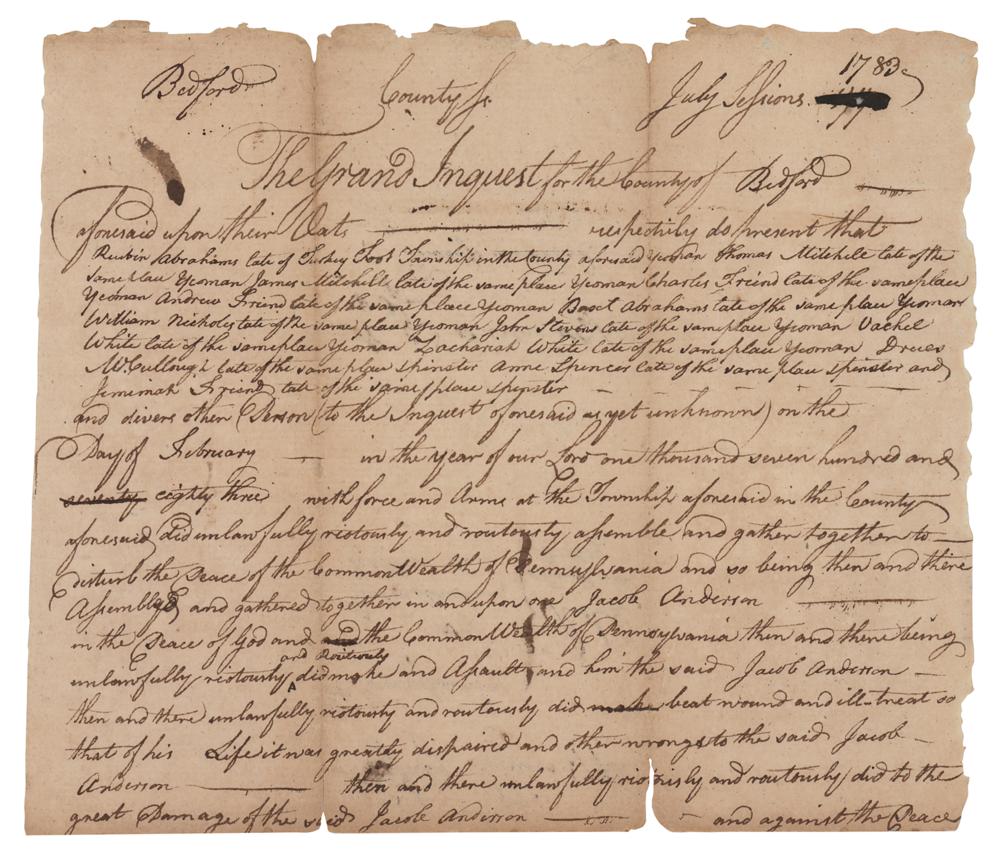 Bedford County Ss. July Sessions 1783
The Grand Inquest for the County of Bedford
aforesaid upon their Oats respectively do present that
Reubin Abrahams late of Turkey Foot Township in the County aforesaid Yeoman Thomas Mitchell late of the
same place Yeoman James Mitchell late of the same place Yeoman Charles Friend late of the same place
Yeoman Andrew Friend late of the same place Yeoman Basel Abrahams late of the same place Yeoman
William Nicholes late of the same place Yeoman John Stevens late of the same place Yeoman Vachel
White late of the same place Yeoman Zachariah White late of the same place Yeoman
McCullough late of the same place spinster Anne Spencer late of the same place spinster and
Jemimah Friend late of the same place spinster
and divers other Person (to the Inquest aforesaid as yet unknown) on the
Day of February in the year of our Lord one thousand seven hundred and
seventy eighty three with force and Arms at the Township aforesaid in the County
aforesaid, did unlawfully riotously and routously assemble and gather together to
disturb the Peace of the CommonWealth of Pennsylvania and so being then and there
Assembled and gathered together in and upon one Jacob Anderson
in the Peace of God and the CommonWealth of Pennsylvania then and there being
and Routously
unlawfully riotously did make and Assault, and him the said Jacob Anderson
then and there unlawfully riotously and routously did make beat wound and ill-treat so
that of his Life it was greatly dispaired and other wrongs to the said Jacob
Anderson then and there unlawfully riotously and routously did to the
great Damage of the said Jacob Anderson and against the Peace